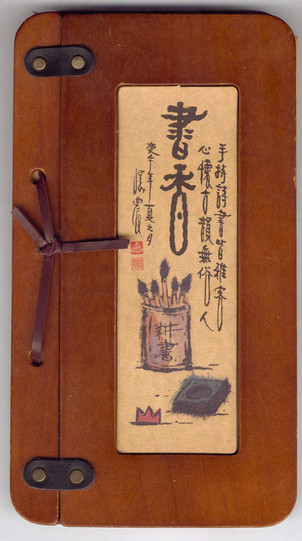 手持詩書皆雅客
心懷古韻無俗人
書香
年夏之月
耕書